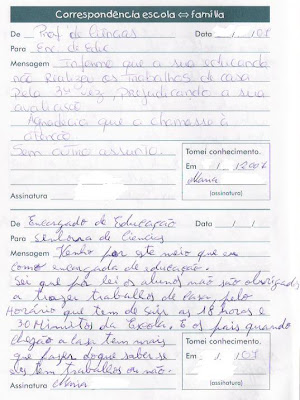 Correspondência escola ⇔ família
De Prof de Ciências Data / / 08
Para Enc. de Educ
Mensagem Informo que a sua educanda
não realizou os trabalhos de casa
pela 3ª vez, prejudicando a sua
avaliação.
Agradecia que a chamasse à
atenção
Sem outro assunto.
Tomei conhecimento.
Em / / 2007
Maria
(assinatura)
Assinatura
De Encargado de Educação Data / /
Para senhora de Ciências
Mensagem Venho por este meio que eu
como encargada de educação.
Sei que por lei os alunos não são obrigados
a trazer traballos de casa, pelo
Horário que tem de sair as 18 horos e
30 Minuitos da Escola. E os pais quando
chegão a casa tem mais
que faser do que saber se
eles tem traballos ou não.
Tomei conhecimento.
Em / / 07
(assinatura)
Assinatura Maria